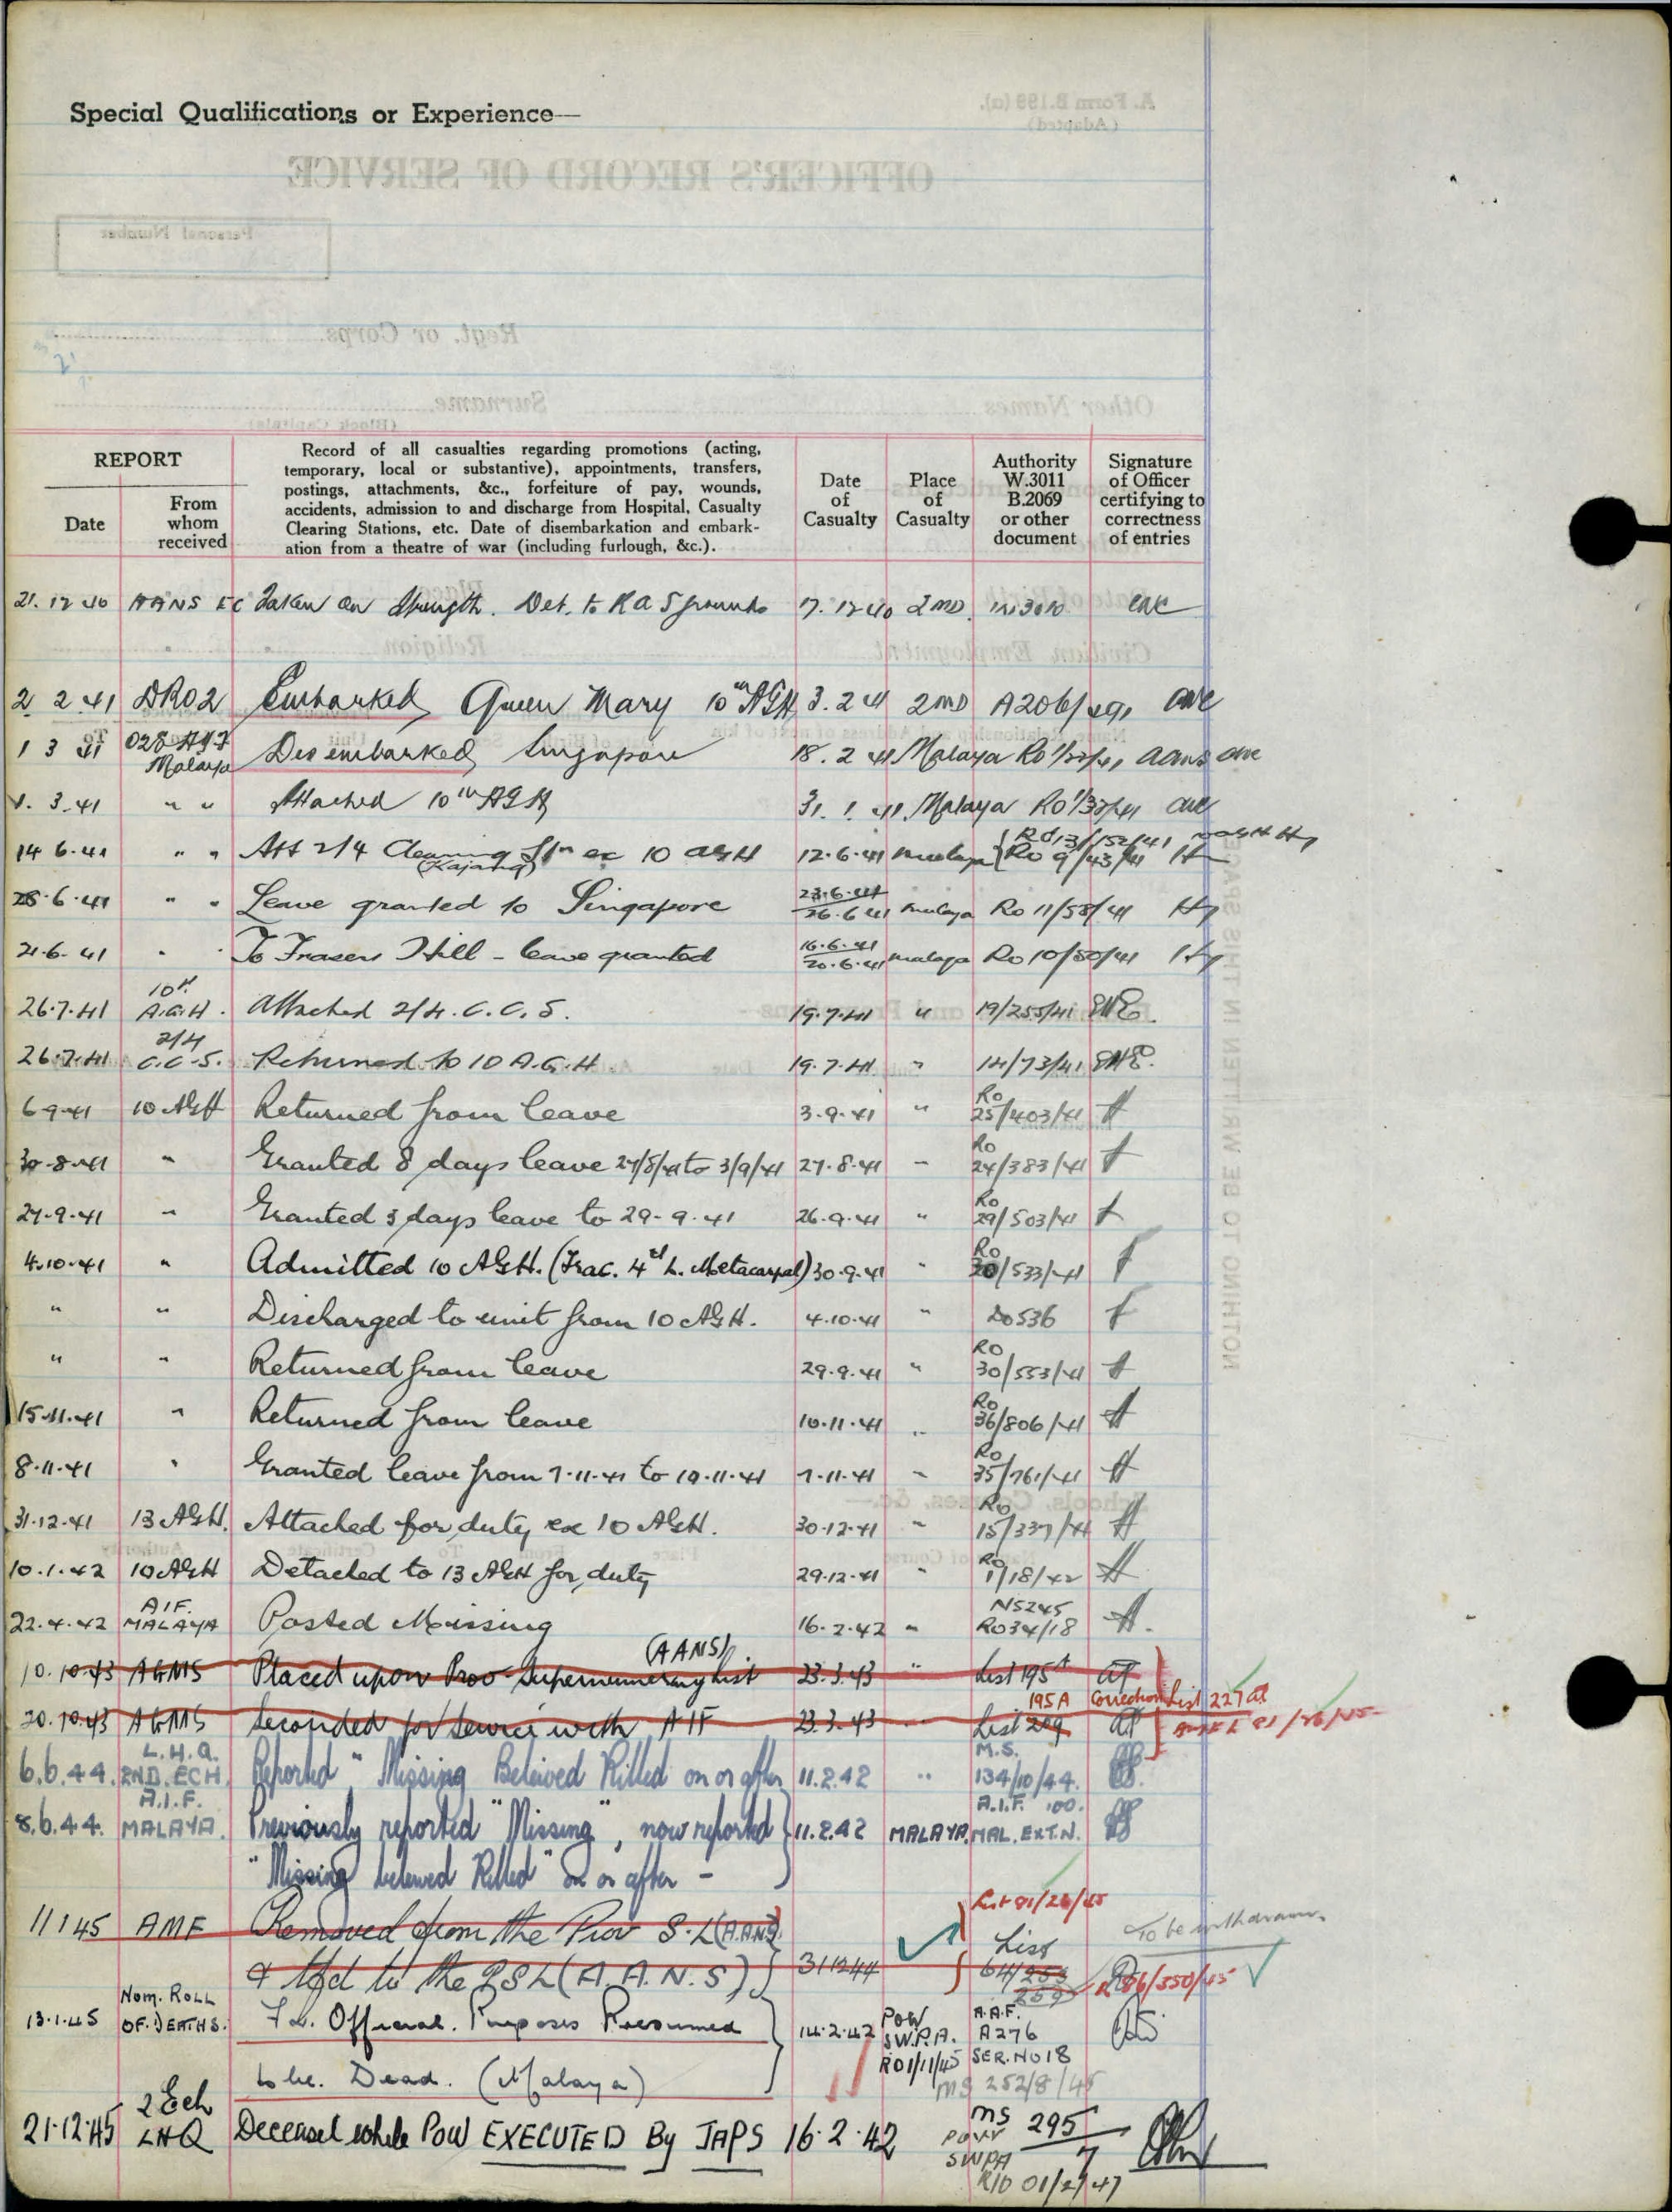 Special Qualifications or Experience—
A. Form B.199 (a).
(Adapted)
OFFICER'S RECORD OF SERVICE
Personal Number
Regt. or Corps
Surname
(Block Capitals)
Other Names
REPORT
Date
From whom received
Record of all casualties regarding promotions (acting,
temporary, local or substantive), appointments, transfers,
postings, attachments, &c., forfeiture of pay, wounds,
accidents, admission to and discharge from Hospital, Casualty
Clearing Stations, etc. Date of disembarkation and embark-
ation from a theatre of war (including furlough, &c.).
Date of Casualty
Place of Casualty
Authority W.3011 B.2069 or other document
Signature of Officer certifying to correctness of entries
21.12.40 AANS EC Taken on Strength. Det. to R A S grounds 17.12.40 2MD
Civilian Employment Religion
2 2 41 DRO2 Embarked Queen Mary 10th AGH 3.2.41 2MD
1 3 41 Malaya Disembarked Singapore 18.2.41 Malaya
1.3.41 " " Attached 10th AGH 31.1.41 Malaya
14 6.41 " " Att 2/4 Clearing Stn ex 10 AGH (Kajang) 12.6.41 Malaya Ro 9/43/41
28.6.41 " " Leave granted to Singapore 23.6.41 26.6.41 Malaya Ro 11/58/41
21.6.41 " " To Frasers Hill - leave granted 16.6.41 20.6.41 Malaya Ro 10/50/41
26.7.41 10th A.G.H. Attached 2/4. C.C.S. 19.7.41 " 19/255/41
26.7.41 2/4 C.C.S. Returned to 10 A.G.H. 19.7.41 " 14/73/41
6.9.41 10 AGH Returned from leave 3.9.41 " Ro 25/403/41
30.8.41 " Granted 8 days leave 27/8/41 to 3/9/41 27.8.41 " Ro 24/383/41
27.9.41 " Granted 3 days leave to 29.9.41 26.9.41 " Ro 29/503/41
4.10.41 " Admitted 10 AGH. (Frac. 4th L. Metacarpal) 30.9.41 " Ro 30/533/41
" " Discharged to unit from 10 AGH. 4.10.41 " Do 536
" " Returned from leave 29.9.41 " Ro 30/553/41
15.11.41 " Returned from leave 10.11.41 " Ro 36/806/41
8.11.41 " Granted leave from 7.11.41 to 10.11.41 7.11.41 " Ro 35/761/41
31.12.41 13 AGH. Attached for duty ex 10 AGH. 30.12.41 " Ro 15/337/41
10.1.42 10 AGH Detached to 13 AGH for duty 29.12.41 " Ro 1/18/42
22.4.42 A.I.F. MALAYA Posted Missing 16.2.42 " N5245 Ro 34/18
10.10.43 AGMS Placed upon Prov Supernumerary List (AANS) 23.3.43 " List 195A
195A Correction List 227
20.10.43 AGMS Seconded for Service with AIF 23.3.43 List 209
6.6.44. L.H.Q. 2ND. ECH. Reported "Missing Beleived Killed on or after 11.2.42 " M.S. 134/10/44.
8.6.44. A.I.F. MALAYA. Previously reported "Missing", now reported 11.2.42 MALAYA. A.I.F. 100. MAL. EXT.N.
"Missing beleived Killed" on or after -
List 81/26/45
11 1 45 AMF Removed from the Prov S.L (A.A.N.S)
& tfd to the R S L (A.A.N.S) 31 12 44 List 64/253 259
To be withdrawn
86/350/45
13.1.45 Nom. ROLL OF. DEATHS. Fr. Official. Purposes Presumed 14.2.42 POW S.W.P.A. RO1/11/45 A.A.F. A276 SER. NO 18
to be. Dead. (Malaya) MS 252/8/45
21.12.45 2 Ech LHQ Deceased while POW EXECUTED By JAPS 16.2.42 MS 295 POW SWPA 7
R/O 01/2/47
NOTHING TO BE WRITTEN IN THIS SPACE